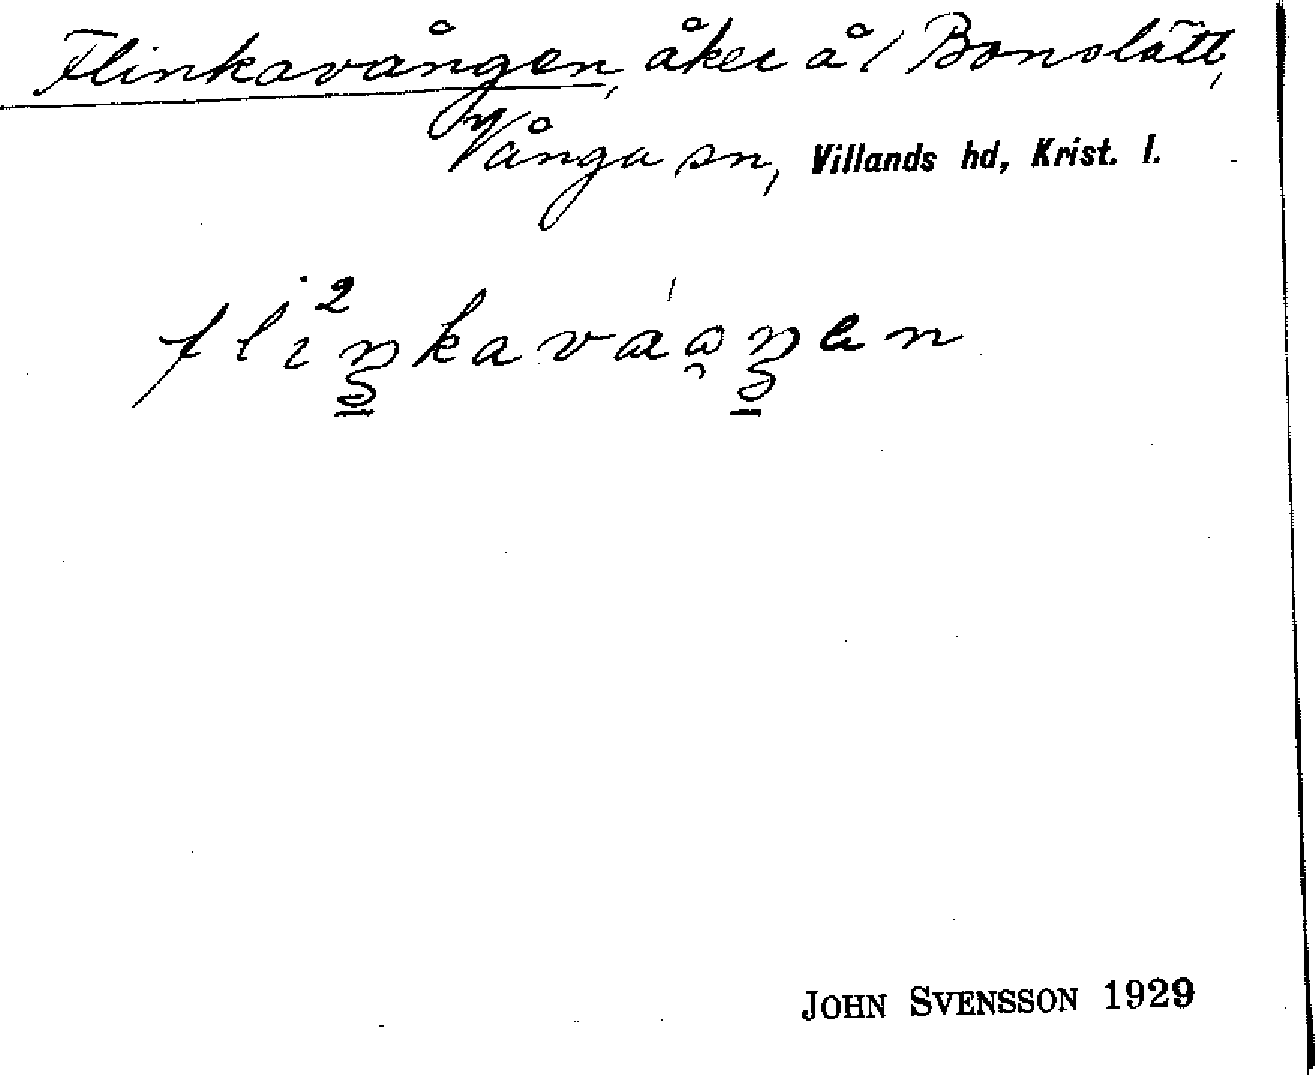 Flinkavången, åker å/ Bonslätt,
Vånga sn, Villands hd, Krist. l.
JOHN SVENSSON 1929